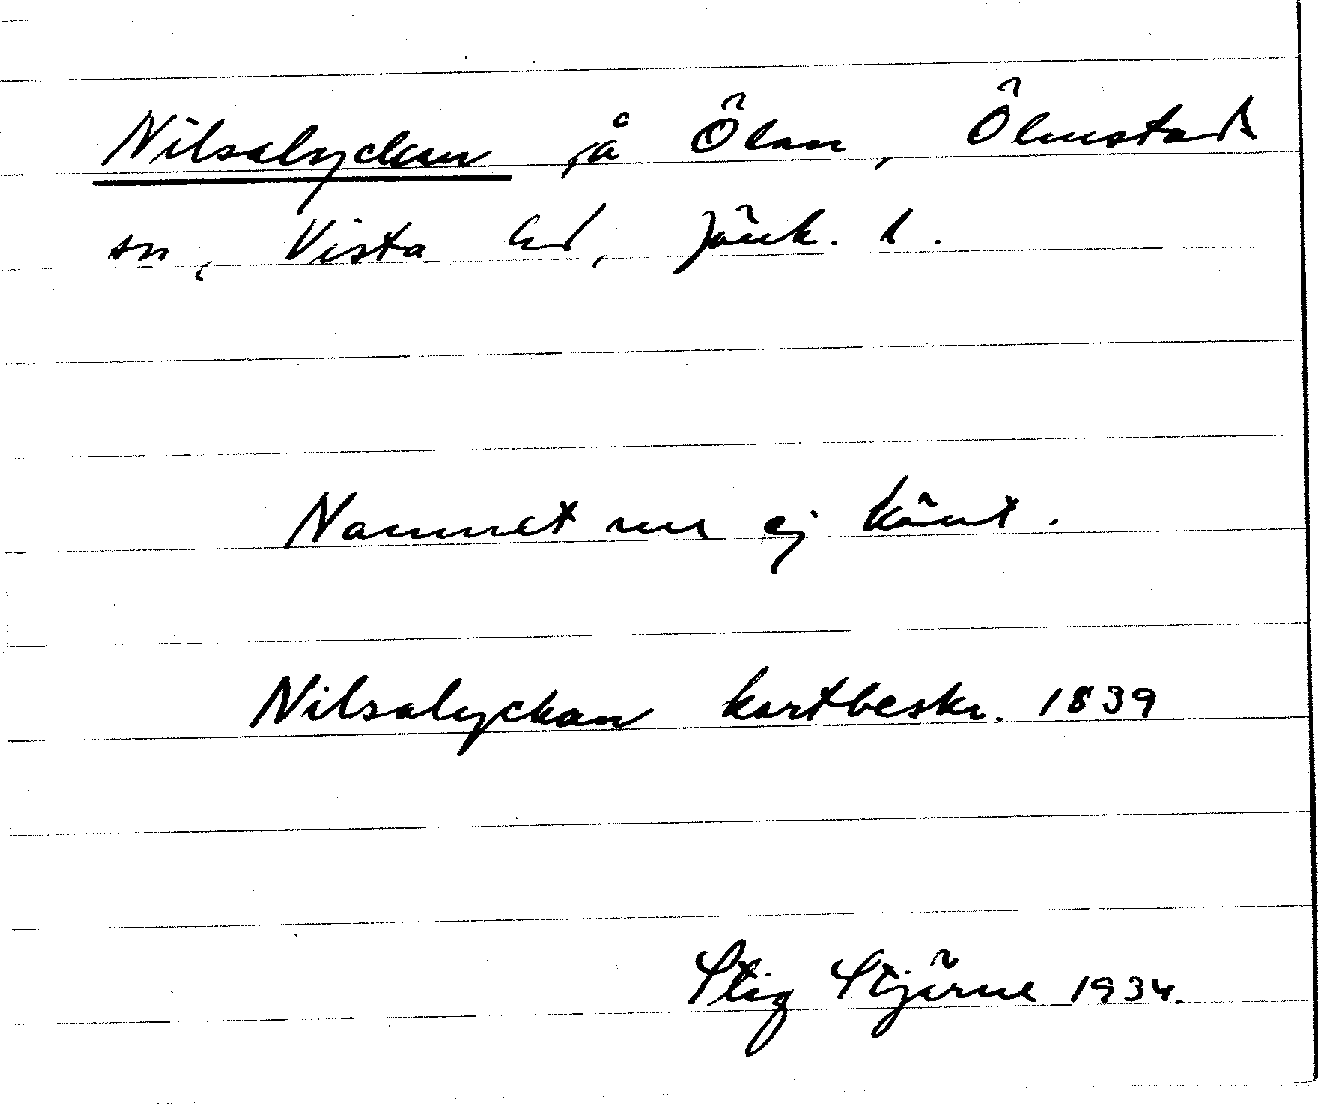 Nilsalyckan på Ölan, Ölmstads
sn, Vista hd, Jönk. l.
Namnet nu ej känt.
Nilsalyckan kartbeskr. 1839
Stig Stjärne 1934.